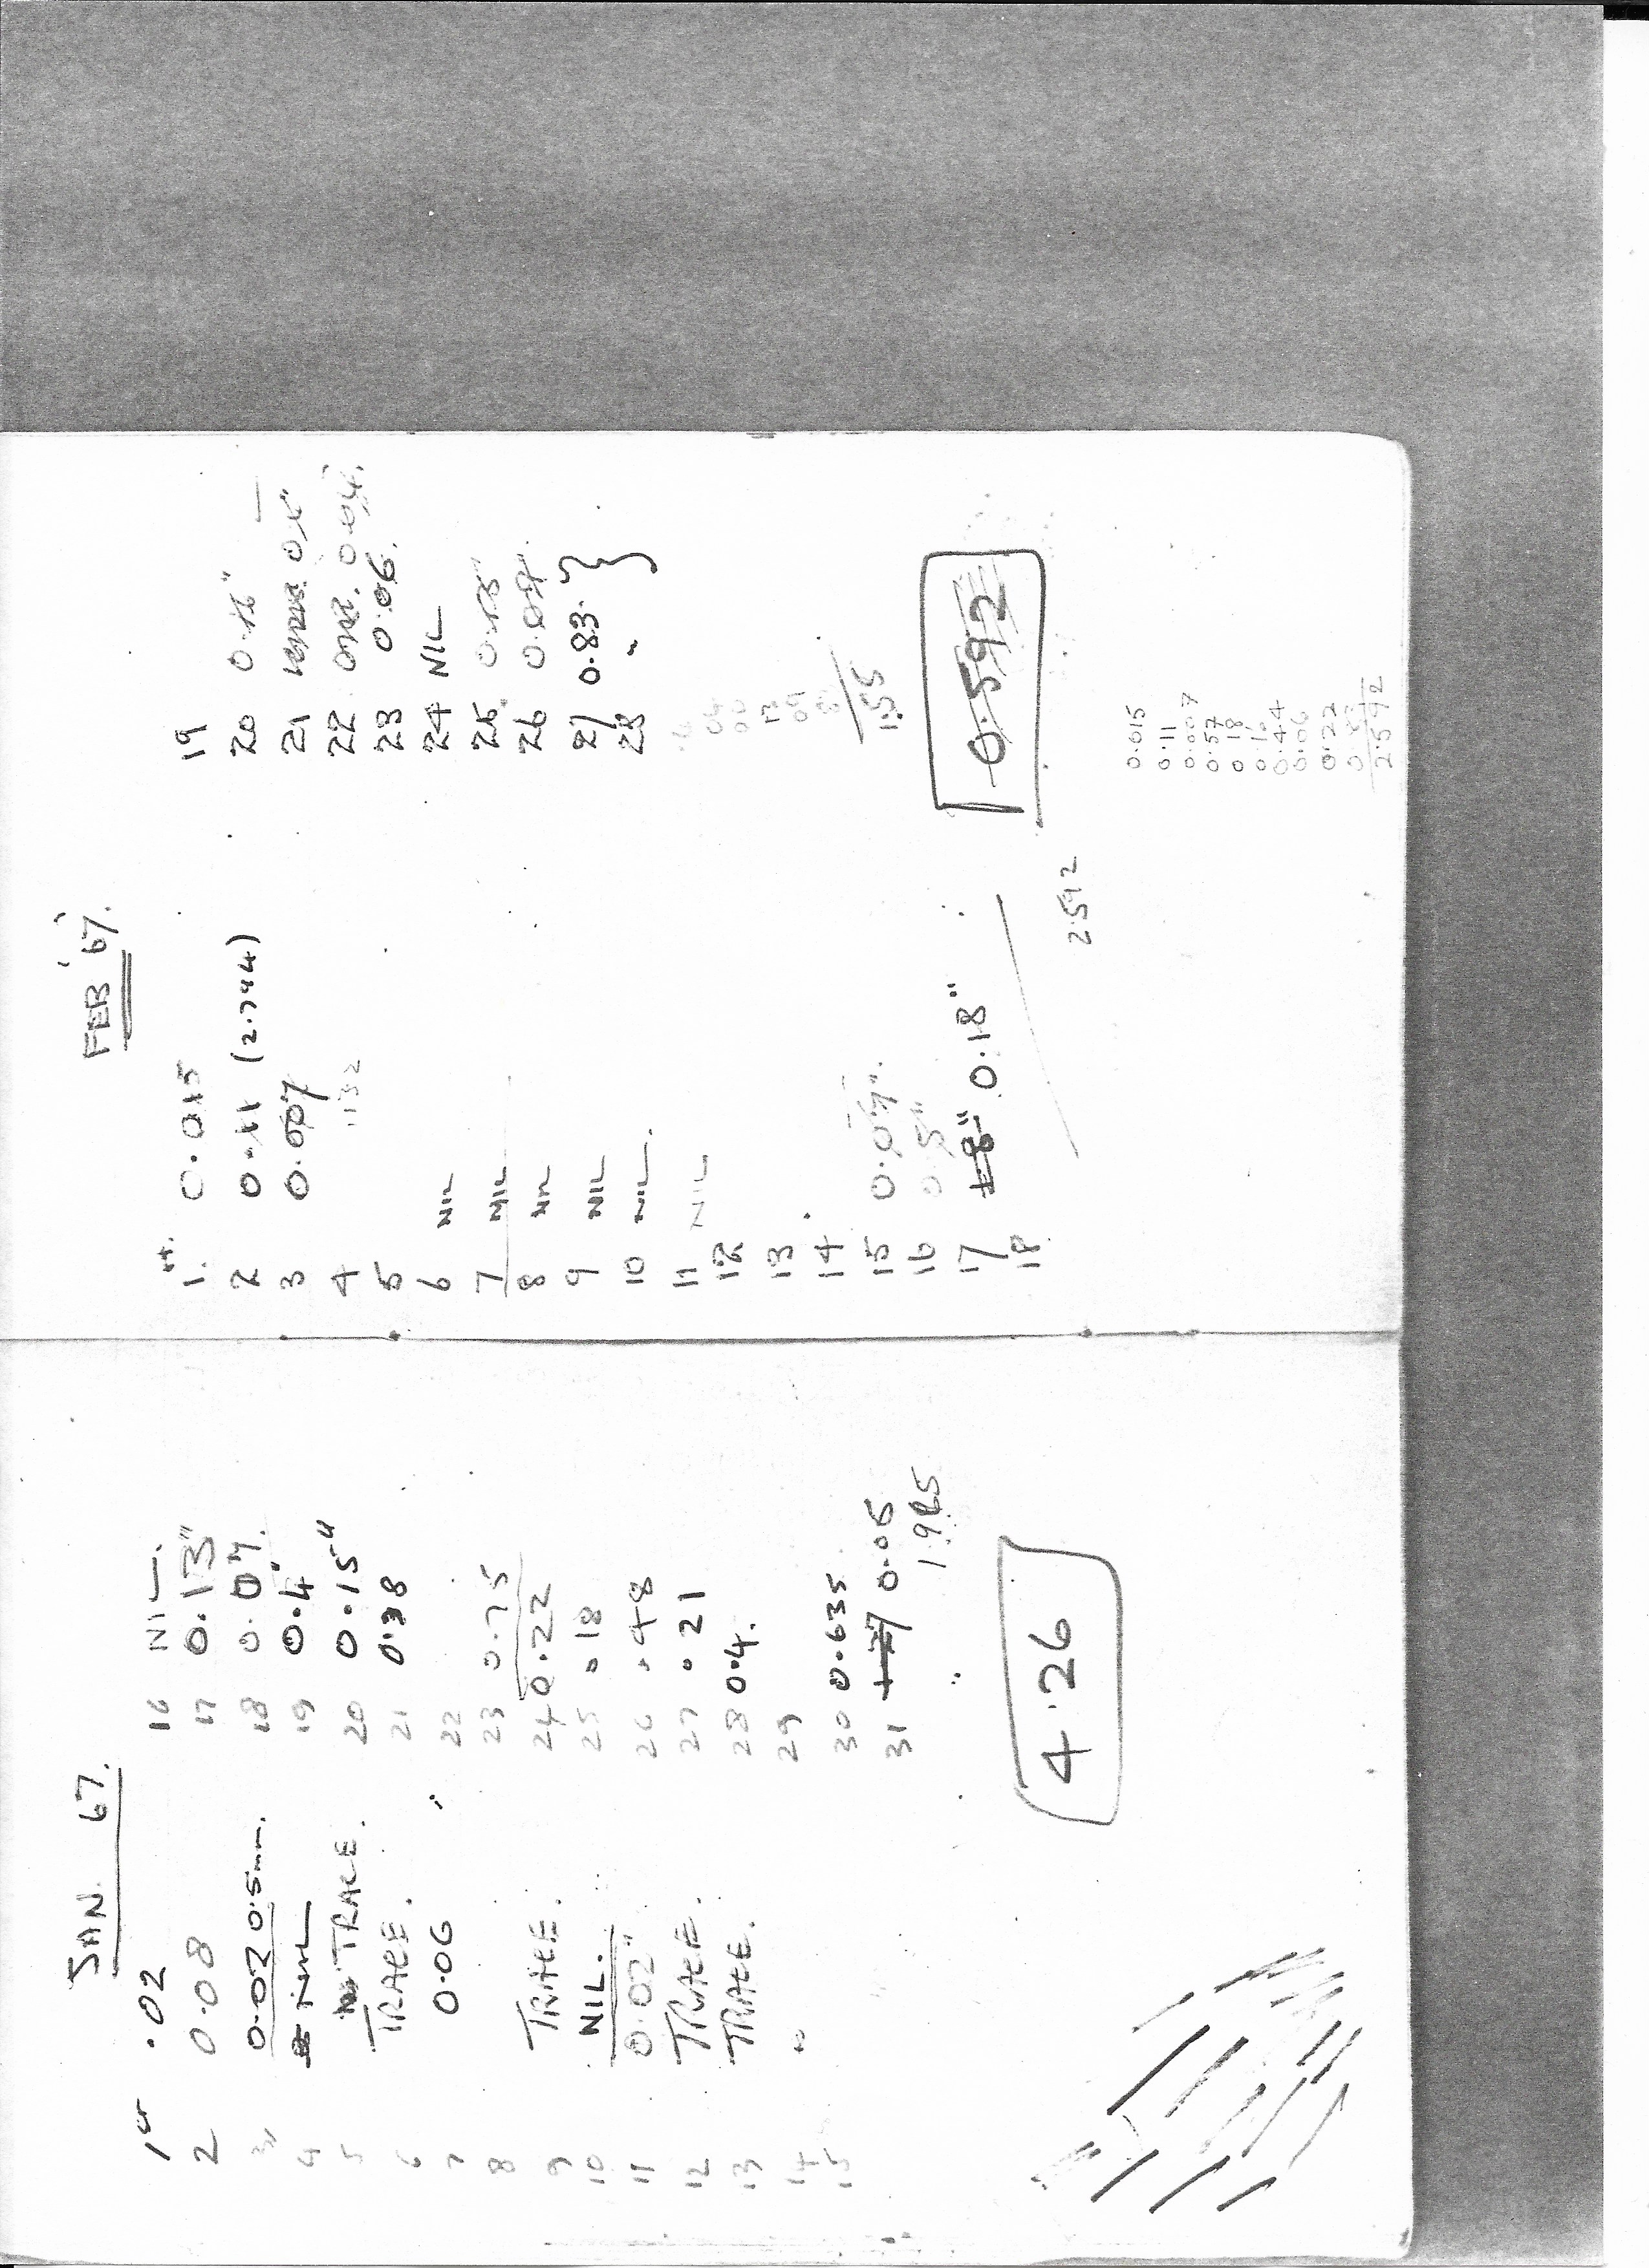 JAN 67.
1st .02
2 0.08
3 0.02 0.5mm.
4 NIL
5 TRACE.
6 TRACE.
7 0.06
8
9 TRACE.
10 NIL.
11 0.02"
12 TRACE.
13 TRACE.
14 "
15
16 NIL.
17 0.13"
18 0.07.
19 0.4"
20 0.15"
21 0.38
22
23 0.75
24 0.22
25 .18
26 .48
27 .21
28 0.4.
29
30 0.635
31 0.05
1.965
4.26
FEB '67.
1st. 0.015
2 0.11 (2.744)
3 0.007
4 .132
5
6 NIL
7 NIL
8 NIL
9 NIL
10 NIL.
11 NIL
12
13
14
15 0.07".
16 0.5"
17 0.18"
18
19
20 0.16"
21
22 0.04".
23 0.06.
24 NIL
25
26
27 0.83.
28 "
1.55
0.592
2.592
0.015
0.11
0.007
0.57
0.18
0.16
0.44
0.06
0.22
0.83
2.592